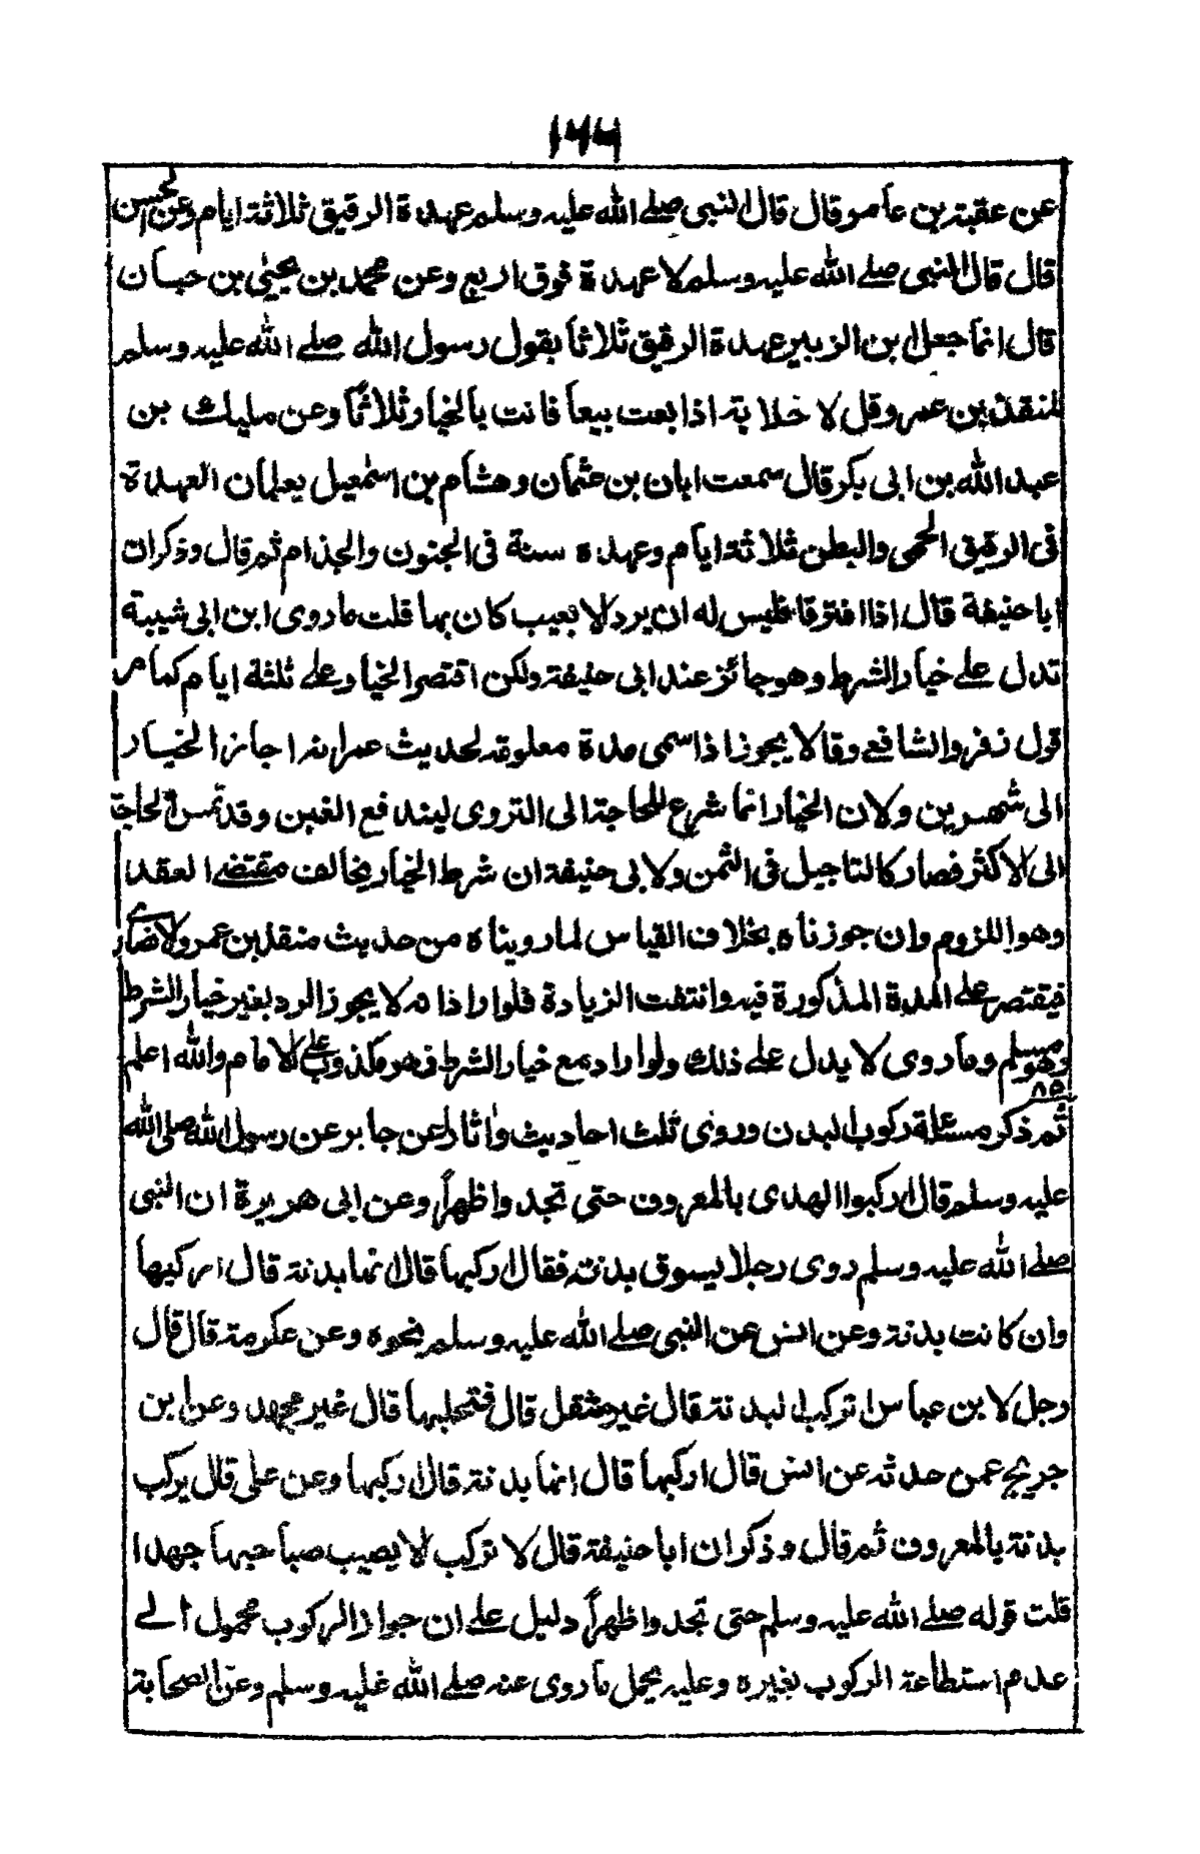 ١٦٦
عن عقبة بن عامر وقال قال النبى صلے الله عليه وسلم عهدة الرقيق ثلاثة ايام وعن الحسن
قال قال النبى صلے الله عليه وسلم لا عهدة فوق اربع وعن محمد بن يحيٰى بن حبان
قال انما جعل ابن الزبير عهدة الرقيق ثلاثا بقول رسول الله صلے الله عليه وسلم
لمنقذ بن عمر وقل لا خلابة اذا بعت بيعا فانت بالخيار ثلاثًا وعن مليك بن
عبد الله بن ابى بكر قال سمعت ابان بن عثمان وهشام بن اسمٰعيل يعلمان العهدة
فى الرقيق الحمى والبطن ثلاثة ايام وعهدة سنة فى الجنون والجذام ثم قال وذكر ان
ابا حنيفة قال اذا افترقا فليس له ان يرد الا بعيب كان بها قلت ما روى ابن ابى شيبة
تدل علے خيار الشرط وهو جائز عند ابى حنيفة ولكن اقتصر الخيار علے ثلثة ايام كما مر
قول زفر والشافعے وقالا يجوز اذا سمى مدة معلومة لحديث عمر انه اجاز الخيار
الى شهرين ولان الخيار انما شرع للحاجة الى التروى ليندفع الغبن وقد تمس الحاجة
الى الاكثر فصار كالتاجيل فى الثمن ولابى حنيفة ان شرط الخيار يخالف مقتضے العقد
وهو اللزوم وان جوزناه بخلاف القياس لما رويناه من حديث منقذ بن عمر والانصارے
فيقتصر علے المدة المذكورة فيه وانتفت الزيادة فلو اراد انه لا يجوز الرد بغير خيار الشرط
وهو مسلم وما روى لا يدل علے ذلك ولو اراد مع خيار الشرط فهو مكذوب علے الامام والله اعلم
٨٥
ثم ذكر مسئلة ركوب البدن وروى ثلث احاديث واثارا عن جابر عن رسول الله صلى الله
عليه وسلم قال اركبوا الهدى بالمعروف حتى تجدوا ظهراً وعن ابى هريرة ان النبى
صلے الله عليه وسلم روى رجلا يسوق بدنة فقال اركبها قال انها بدنة قال اركبها
وان كانت بدنة وعن انس عن النبى صلے الله عليه وسلم بنحوه وعن عكرمة قال قال
رجل لابن عباس اتركب البدنة قال غير مثقل قال فتحلبها قال غير مجهد وعن ابن
جريج عمن حدثه عن انس قال اركبها قال انما بدنة قال اركبها وعن على قال يركب
بدنة بالمعروف ثم قال وذكر ان ابا حنيفة قال لا تركب الا يصيب صاحبها جهدا
قلت قوله صلے الله عليه وسلم حتى تجدوا ظهراً دليل علے ان جواز الركوب محمول الے
عدم استطاعة الركوب بغيره وعليه يحمل ما روى عنه صلے الله عليه وسلم وعن الصحابة